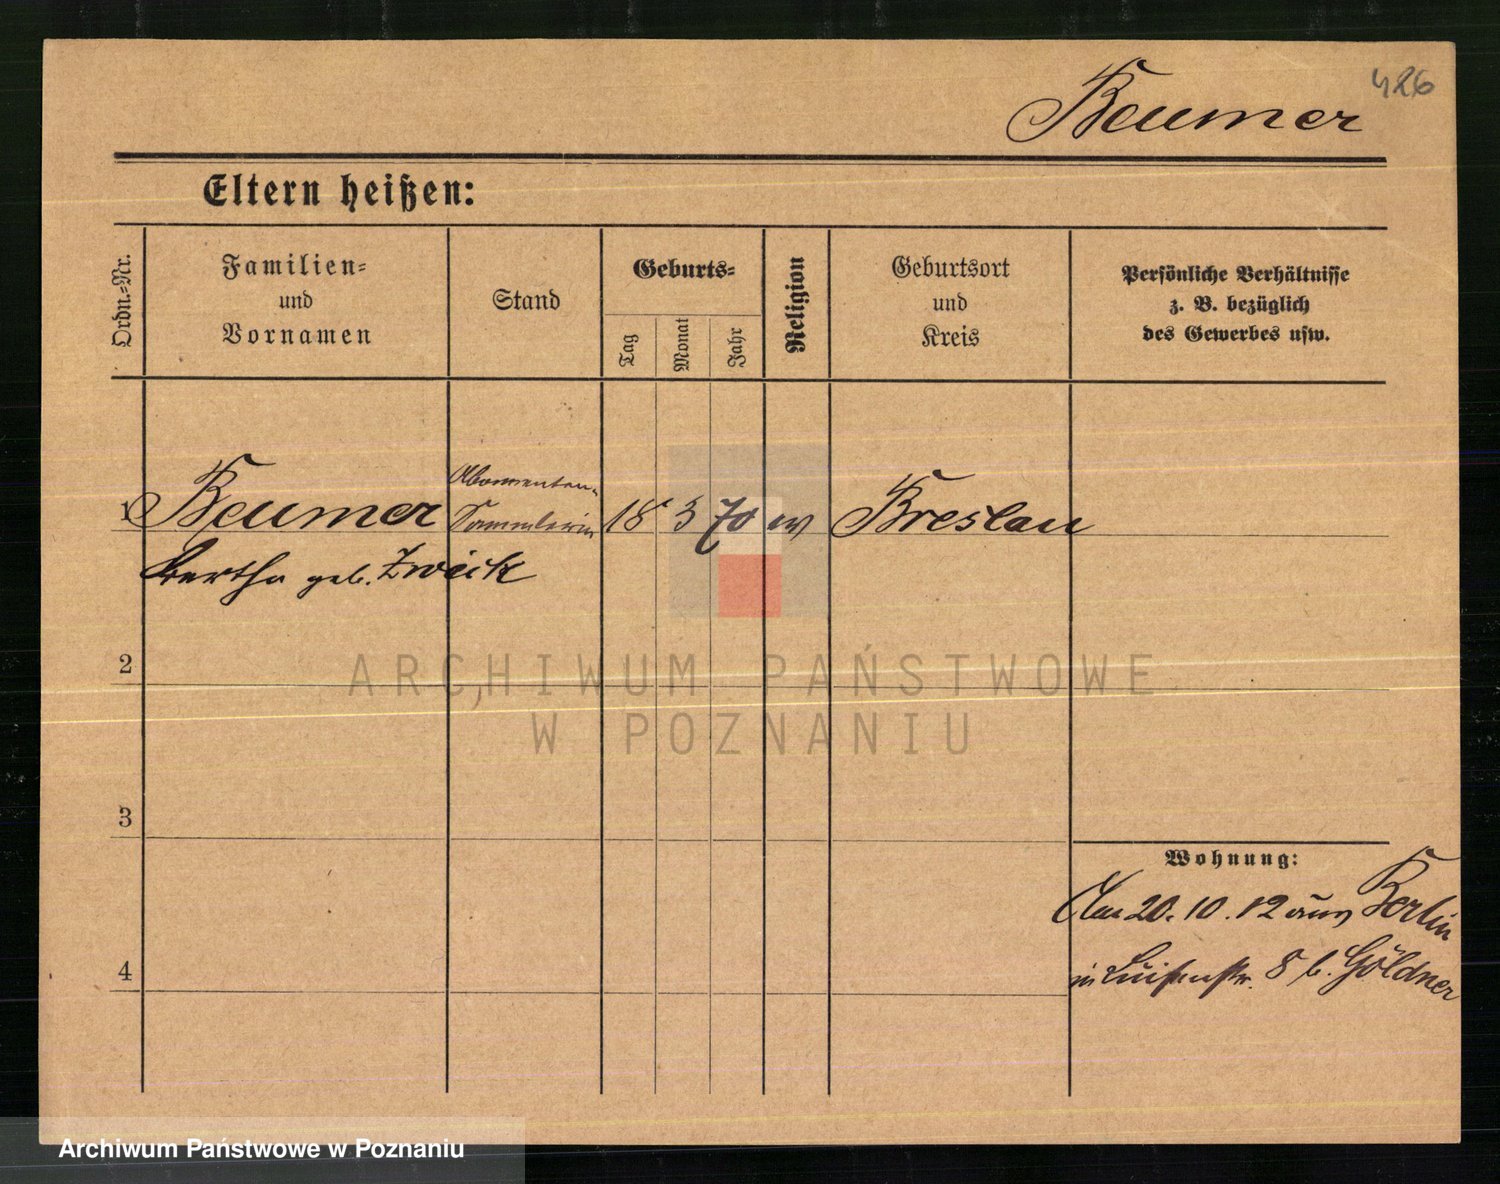 426
Beumer
Eltern heißen:
Ordn.-Nr.
Familien-
und
Vornamen
Stand
Geburts-
Tag
Monat
Jahr
Religion
Geburtsort
und
Kreis
Persönliche Verhältnisse
z. B. bezüglich
des Gewerbes usw.
Abonnenten-
1 Beumer Sammlerin 18 3 70 ev Breslau
Bertha geb. Zweick
2
ARCHIWUM PAŃSTWOWE
W POZNANIU
3
Wohnung:
Am 20. 10. 12 aus Berlin
in Luisenstr. 8 b. Göldner
4
Archiwum Państwowe w Poznaniu